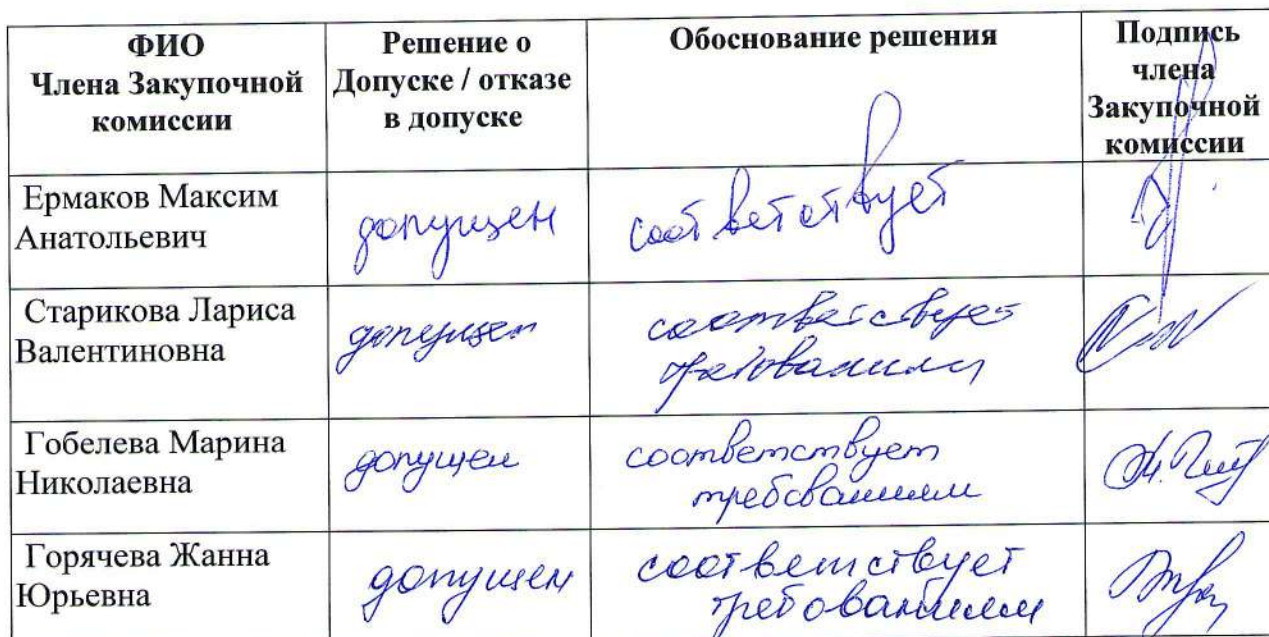 ФИО
Члена Закупочной
комиссии
Решение о
Допуске / отказе
в допуске
Обоснование решения
Подпись
члена
Закупочной
комиссии
Ермаков Максим
Анатольевич
допущен
соответствует
Старикова Лариса
Валентиновна
допущен
соответствует
требованиям
Гобелева Марина
Николаевна
допущен
соответствует
требованиям
Горячева Жанна
Юрьевна
допущен
соответствует
требованиям